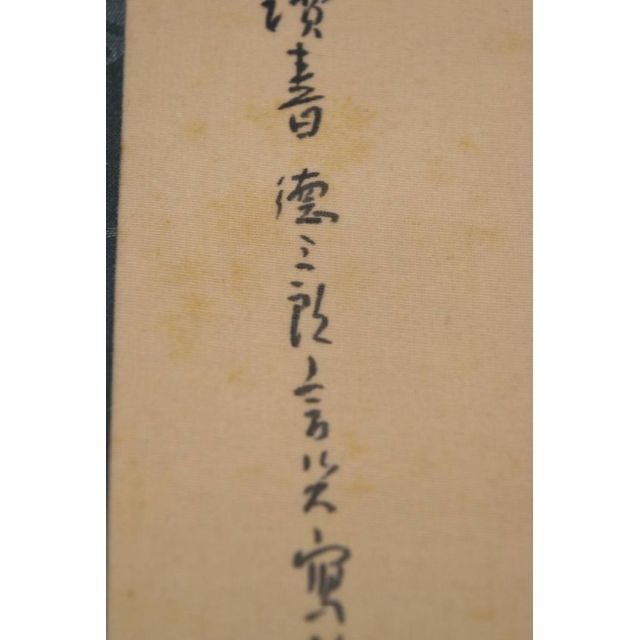 讀書 德三郎言笑寫